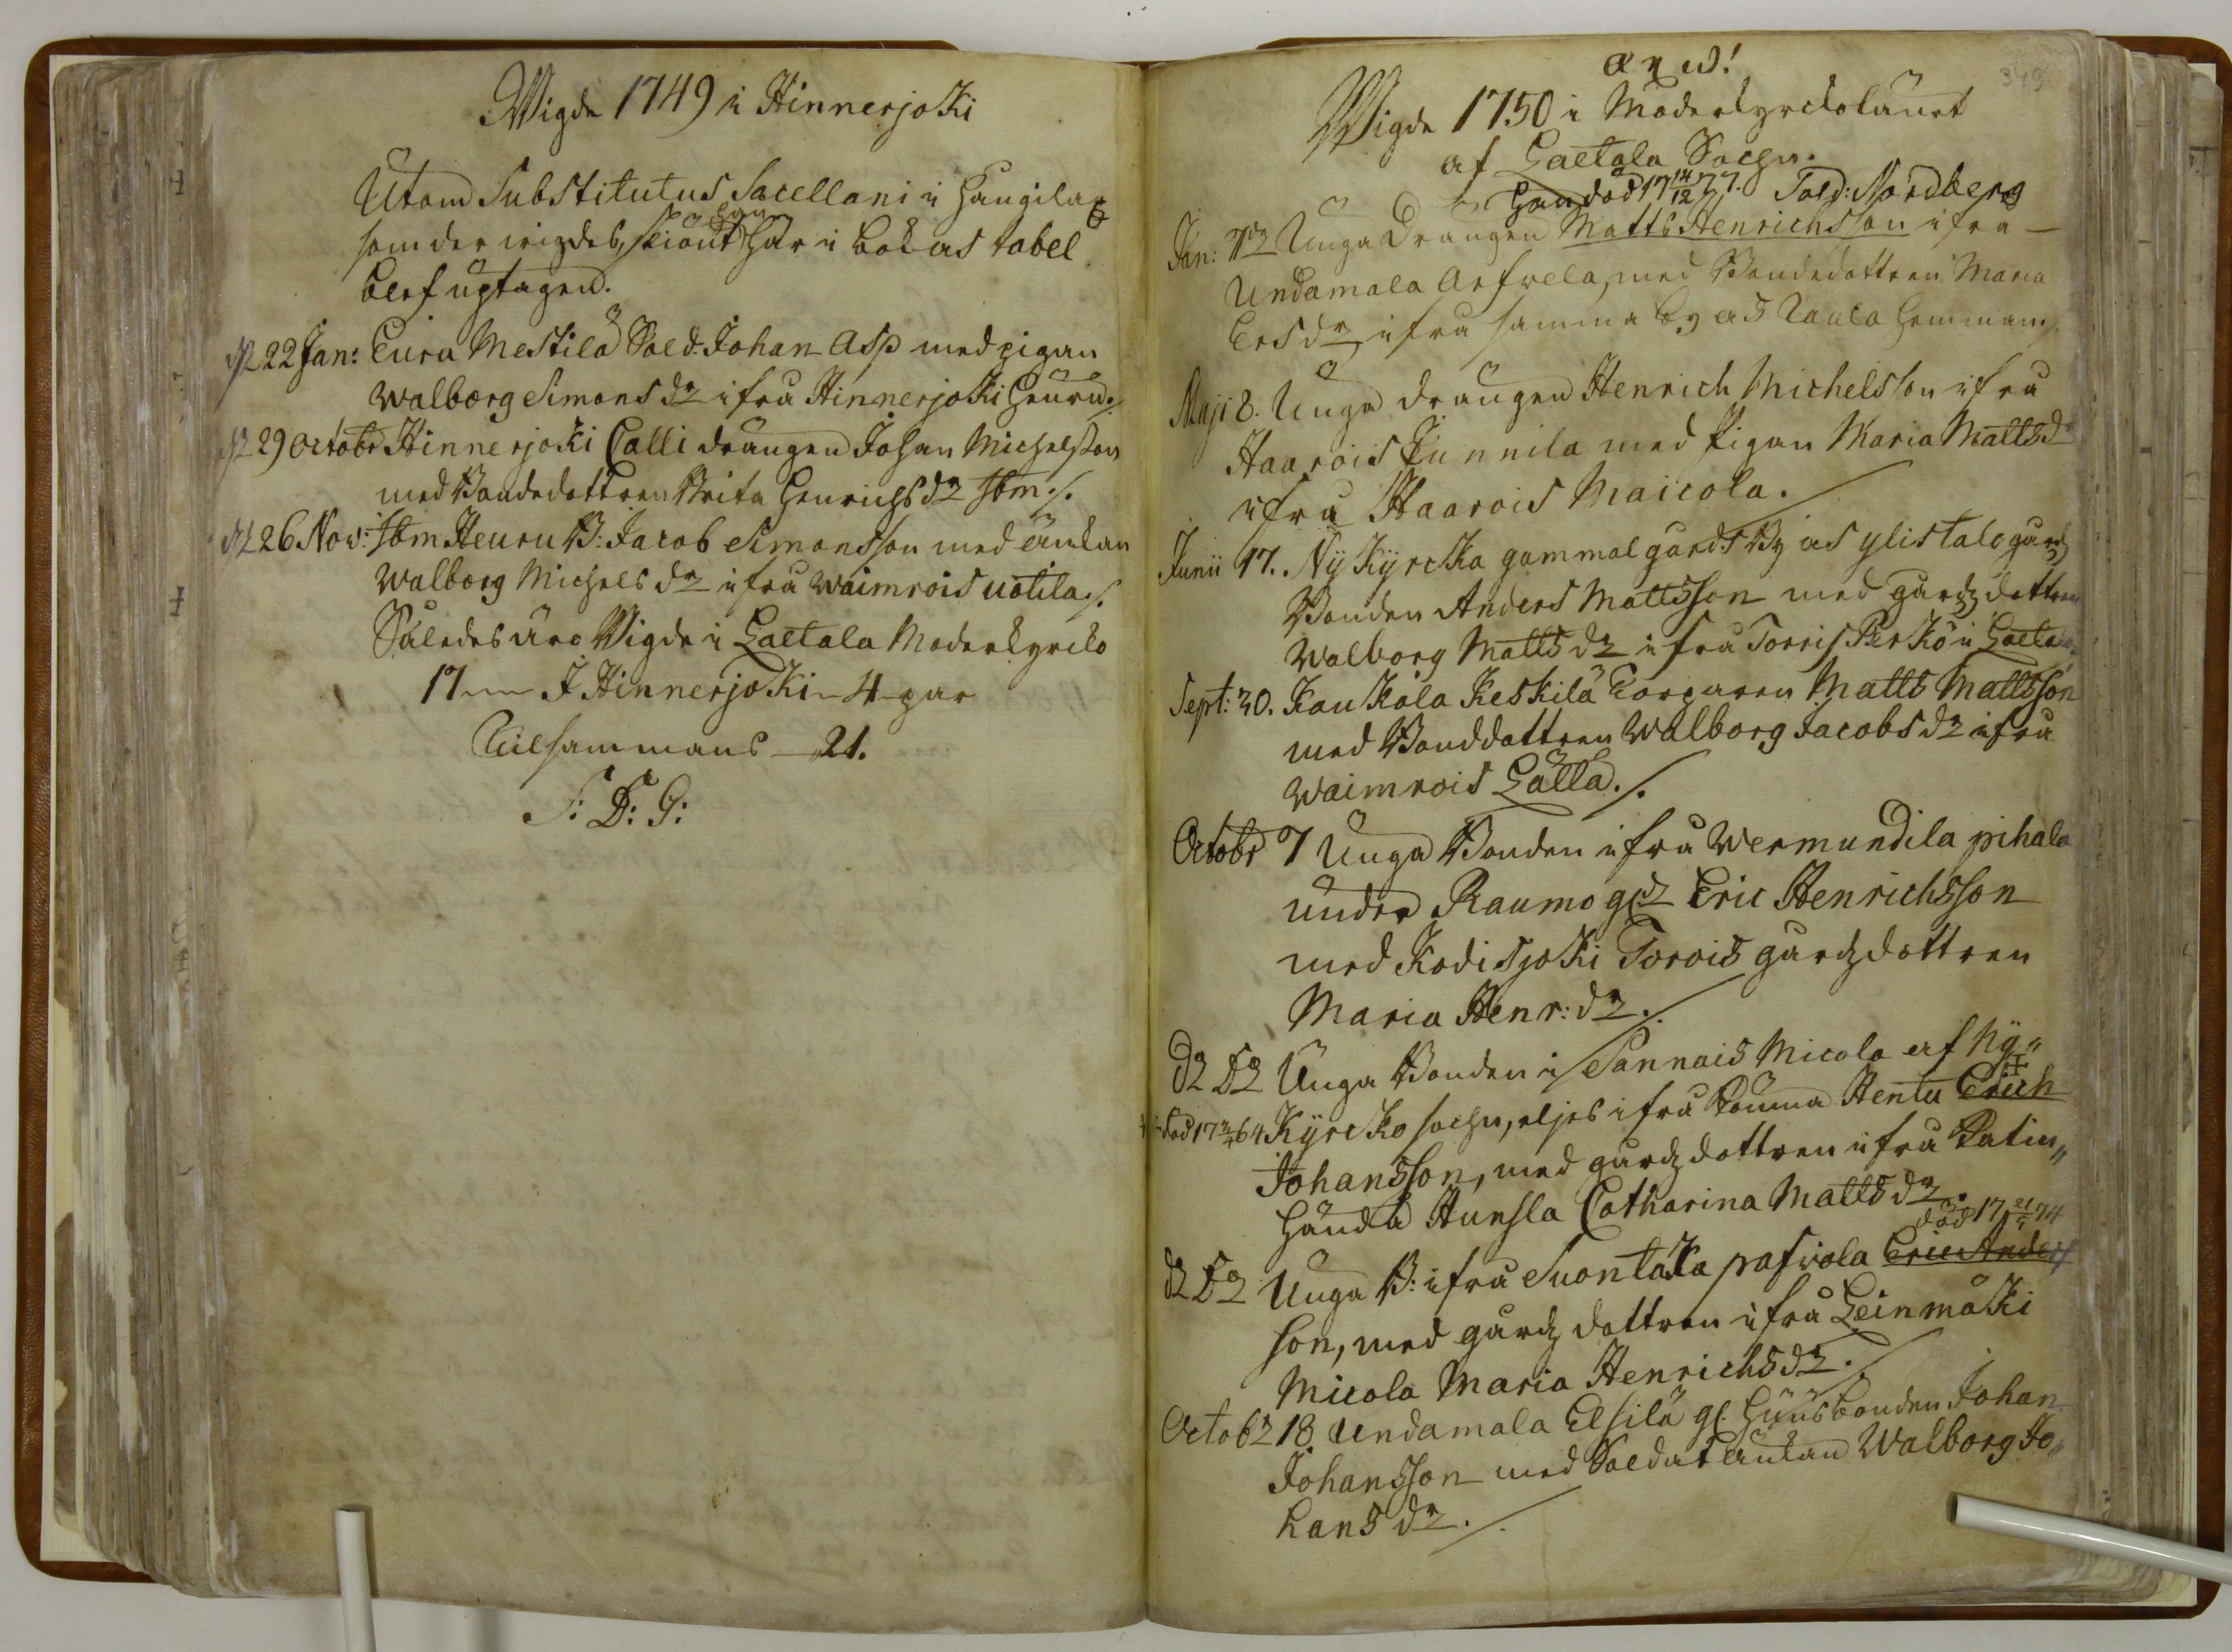 Wigde 1749 i Hinnerjoki
Utom Substitutus Sacellani i Hangilax
som der wigdes, skiönt han här i bokas tabel
blef uptagen.
d 22 Jan: Eura Mestilä Sold. Johan Asp med pigan
Walborg Simons dr ifrå Hinnerjoki Heuru ./.
d 29 Octobr Hinnerjoki Calli drängen Johan Michelsson
med Bondedottren Brita Henrichs dr ibm ./.
d 26 Nov: ibm Heuru B: Jacob Simonsson med änkan
Walborg Michels dr ifrå Waimrois Uotila ./.
Således äro Wigde i Laetala Moderkyrcko
17 I Hinnerjoki 4 par
Tilsammans 21.
S: D: G:
α χ ω!
349
Wigde 1750 i Moderkyrckolänet
af Laetala Sochn.
Han död 17 14/12 77. Sold: Nordberg
Jan: 7 Unga Drängen Matts Henrichsson ifrå
Undamala Arfwela, med Bondedottren Maria
Ers dr ifrå samma by as Taula hemman ./.
Maji 8. Unga drängen Henrich Michelsson ifrå
Haarois Junnila med Pigan Maria Matts dr
ifrå Haarois Maicola.
Junii 17. Nykyrcka gammalgårds By as Ylistalo gård
Bonden Anders Mattsson med gårdz dottren
Walborg Matts dr ifrå Torris Perkö i Laetala.
Sept: 30. Kaukola Keskilä Torparen Matts Mattsson
med Bonddottren Walborg Jacobs dr ifrå
Waimrois Lälla ./.
Octobr 7 Unga Bonden ifrå Wermundila pihala
under Raumo Eric Henrichsson
med Kodisjoki Torois gårdzdottren
Maria Henr: dr.
d: D: Unga Bonden i Sannais Micola af Ny„
död 17 64 Kyrcko sochn, eljes ifrå Hentu Erich
Johansson, med gårdzdottren ifrå Catin„
händä Hunsla Catharina Matts dr.
död 17 21 74
d: D: Unga B: ifrå Suontaka pafwola Eric Anders
son, med gårdz dottren ifrå Leinmäki
Micola Maria Henrichs dr.
Octobr 18. Undamala Elsilä gl. Husbonden Johan
Johansson med Soldat änkan Walborg Jo„
hans dr.